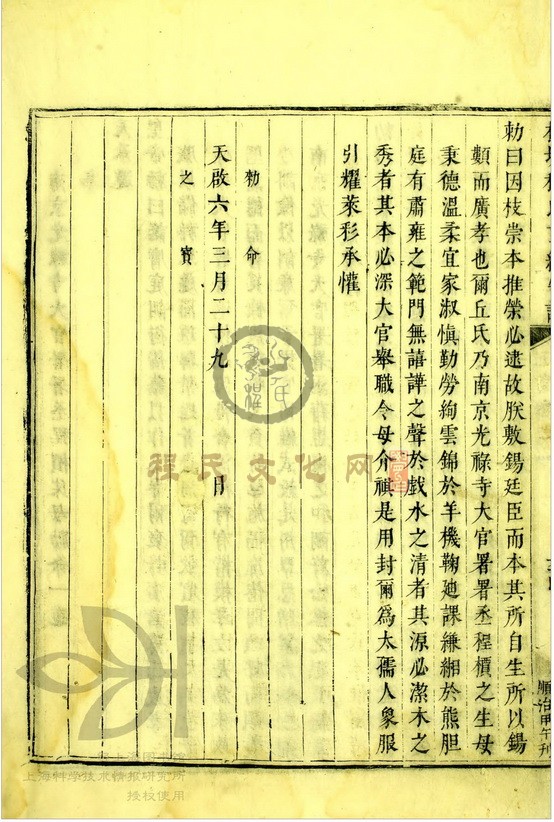 勅曰因枝崇本推榮必逮故朕敷錫廷臣而本其所自生所以錫
類而廣孝也爾丘氏乃南京光祿寺大官署署丞程槓之生母
秉德溫柔宜家淑慎勤勞絢雲錦於羊機鞠廸課縑緗於熊胆
庭有肅雍之範門無譆譁之聲於戲水之清者其源必潔木之
秀者其本必深大官舉職令母介祺是用封爾為太孺人象服
引耀萊彩承懽
勅命
天啟六年三月二十九 日
之寶
順治甲午刊
程氏文化网
上海图书馆
上海科学技术情报研究所
授权使用